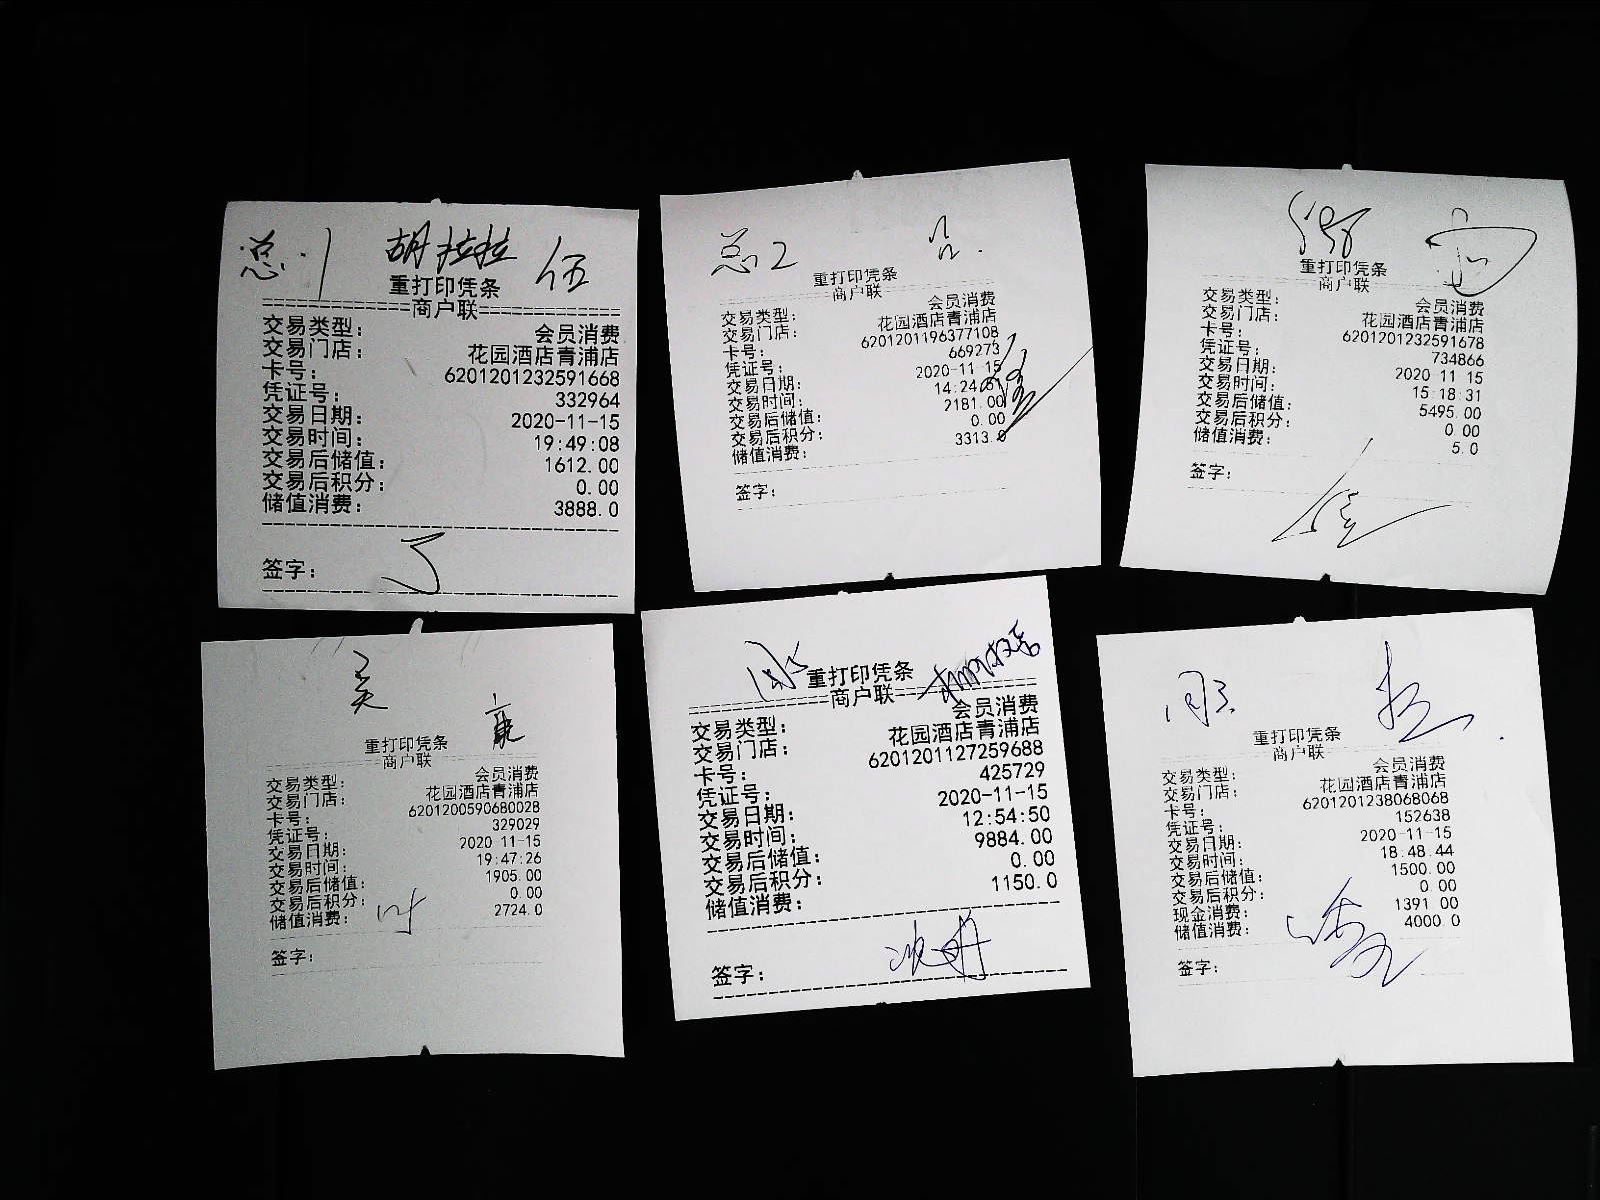 总1 胡拉拉 伍
重打印凭条
==========商户联==========
交易类型: 会员消费
交易门店: 花园酒店青浦店
卡号: 6201201232591668
凭证号: 332964
交易日期: 2020-11-15
交易时间: 19:49:08
交易后储值: 1612.00
交易后积分: 0.00
储值消费: 3888.0
签字:
总2
重打印凭条
商户联
交易类型: 会员消费
交易门店: 花园酒店青浦店
卡号: 6201201196377108
凭证号: 669273
交易日期: 2020-11-15
交易时间: 14:24:51
交易后储值: 2181.00
交易后积分: 0.00
储值消费: 3313.0
签字:
重打印凭条
商户联
交易类型: 会员消费
交易门店: 花园酒店青浦店
卡号: 6201201232591678
凭证号: 734866
交易日期: 2020-11-15
交易时间: 15:18:31
交易后储值: 5495.00
交易后积分: 0.00
储值消费: 5.0
签字:
重打印凭条
商户联
交易类型: 会员消费
交易门店: 花园酒店青浦店
卡号: 6201200590680028
凭证号: 329029
交易日期: 2020-11-15
交易时间: 19:47:26
交易后储值: 1905.00
交易后积分: 0.00
储值消费: 2724.0
签字:
重打印凭条
==========商户联==========
交易类型: 会员消费
交易门店: 花园酒店青浦店
卡号: 6201201127259688
凭证号: 425729
交易日期: 2020-11-15
交易时间: 12:54:50
交易后储值: 9884.00
交易后积分: 0.00
储值消费: 1150.0
签字:
重打印凭条
商户联
交易类型: 会员消费
交易门店: 花园酒店青浦店
卡号: 6201201238068068
凭证号: 152638
交易日期: 2020-11-15
交易时间: 18:48:44
交易后储值: 1500.00
交易后积分: 0.00
现金消费: 1391.00
储值消费: 4000.0
签字: